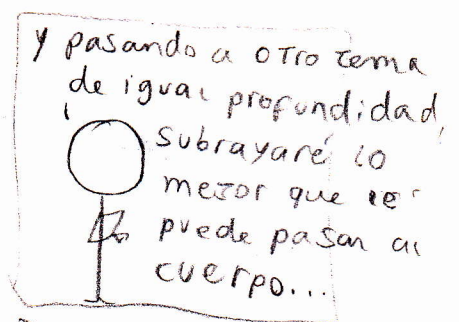 Y pasando a otro tema
de igual profundidad,
subrayaré lo
mejor que le
puede pasar al
cuerpo...